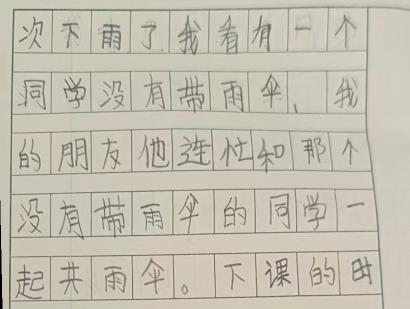 次下雨了我看有一个
同学没有带雨伞、我
的朋友他连忙和那个
没有带雨伞的同学一
起共雨伞。下课的时